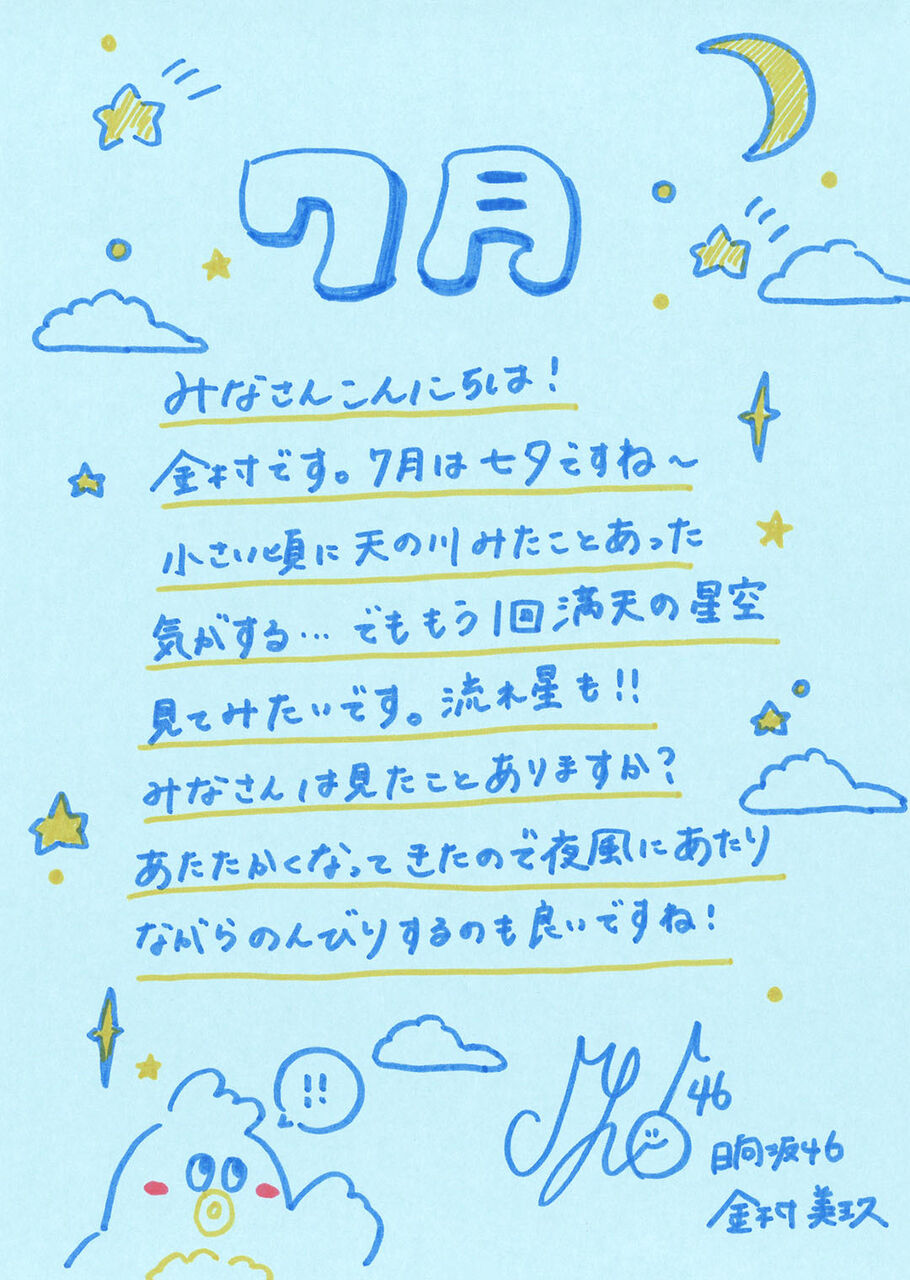 7月
みなさんこんにちは!
金村です。7月は七夕ですね〜
小さい頃に天の川みたことあった
気がする…でももう1回満天の星空
見てみたいです。流れ星も!!
みなさんは見たことありますか?
あたたかくなってきたので夜風にあたり
ながらのんびりするのも良いですね!
!!
46
日向坂46
金村美玖